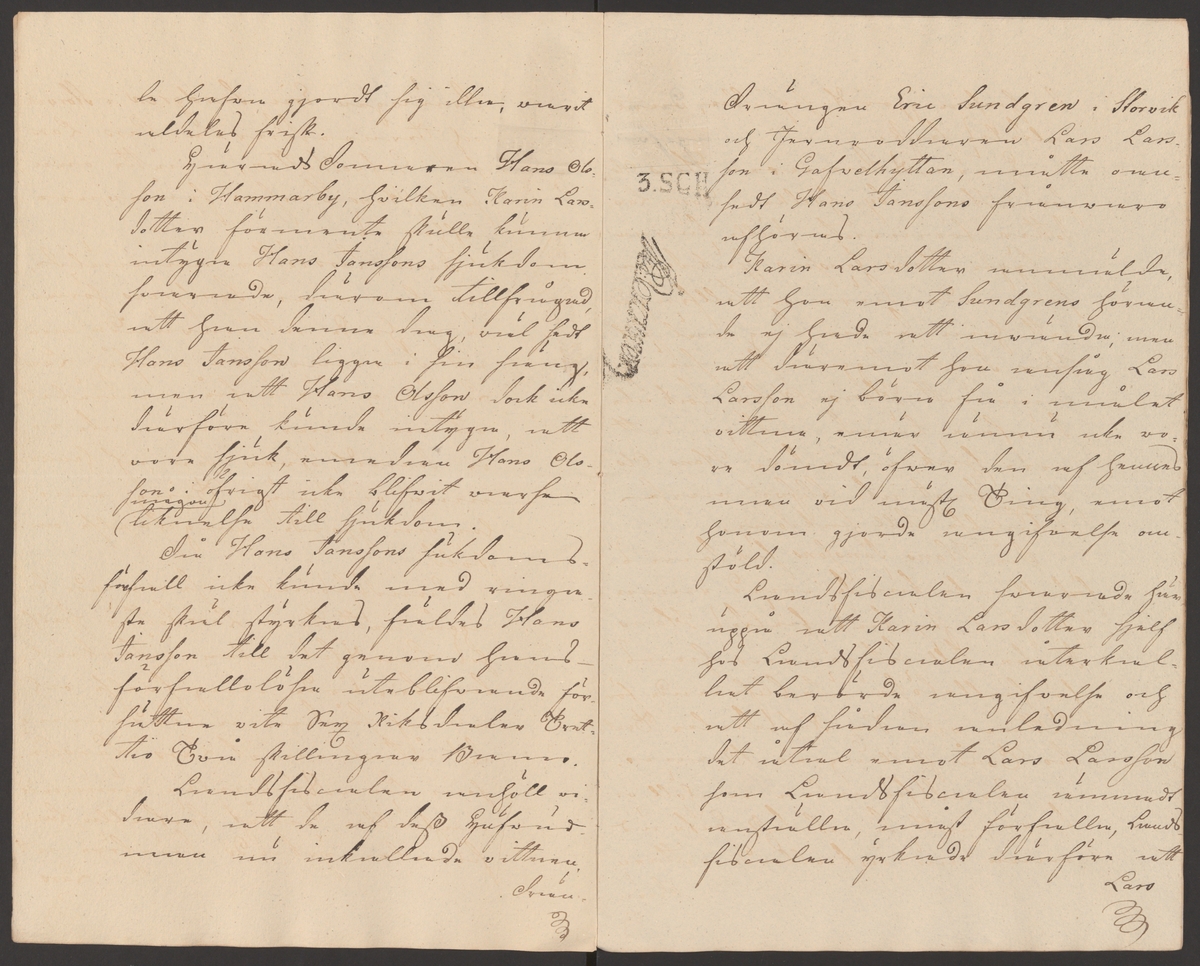 le hafva gjordt sig illa, warit
aldeles frisk.
Häradsdomaren Hans Ols-
son i Hammarby, hvilken Karin Lars-
dotter förmente skulle kunna
intyga Hans Janssons sjukdom,
svarade, därom tillfrågad,
att han denne dag, väl sedt
Hans Jansson ligga i sin säng,
men att Hans Olsson dock icke
därföre kunde intyga, att
vore sjuk, emedan Hans Ols-
son i öfrigt icke blifvit warse
någon
liknelse till sjukdom.
Då Hans Janssons sjukdoms-
förfall icke kunde med ringa-
ste skäl styrkas, fäldes Hans
Jansson till det genom hans
förfallolösa uteblifvande för-
suttna vite Sex Riksdaler Tret-
tio Två skillingar Banco.
Landsfiscalen anhöll vi-
dare, att de af dess Hufvud-
man nu inkallade vittnen,
Drän-
Drängen Eric Sundgren i Storvik
och Jernarbetaren Lars Lars-
son i Gafvelhyttan, måtte oan-
sedt Hans Janssons frånvaro
afhöras.
3.SCH
Karin Larsdotter anmälde,
att hon emot Sundgrens höran-
de ej hade att invända, men
att däremot hon ansåg Lars
Larsson ej böra få i målet
vittna, enär ännu icke vo-
re dömdt, öfver den af hennes
man vid näst Ting, emot
honom gjorde angifvelse om
stöld.
Landsfiscalen svarade här
uppå att Karin Larsdotter sjelf
hos Landsfiscalen återkal-
lat berörde angifvelse och
att af sådan anledning
det åtal emot Lars Larsson
som Landsfiscalen ämnadt
anställa, måst förfalla, Lands-
fiscalen yrkade därföre att
Lars